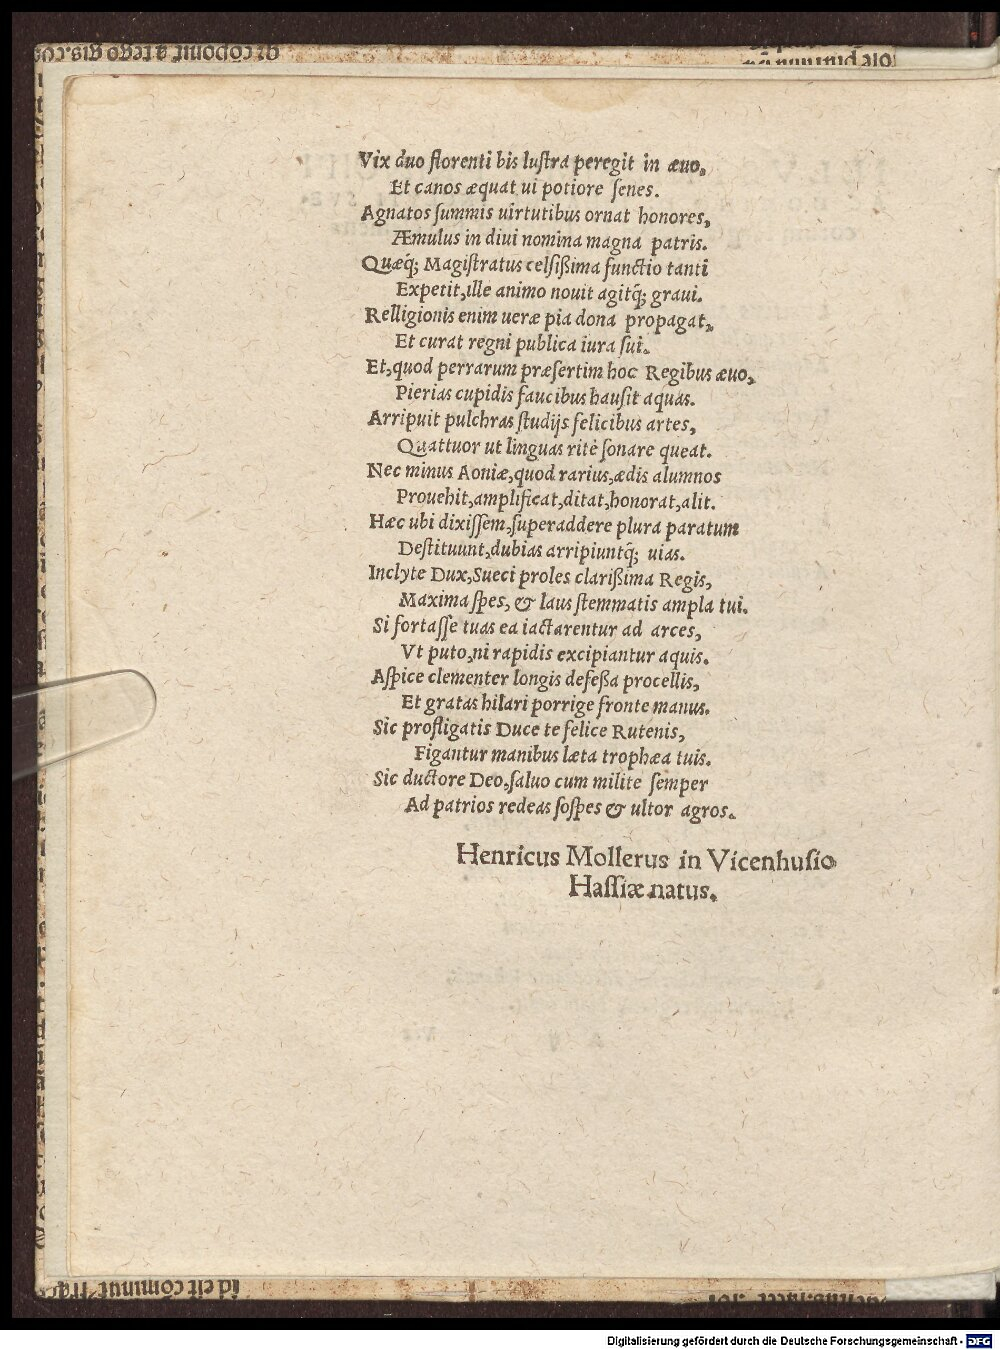 Vix duo florenti bis luſtra peregit in æuo,
Et canos æquat ui potiore ſenes.
Agnatos ſummis uirtutibus ornat honores,
Æmulus in diui nomina magna patris.
Quæq́; Magiſtratus celſißima functio tanti
Expetit, ille animo nouit agitq́; graui.
Relligionis enim ueræ pia dona propagat,
Et curat regni publica iura ſui.
Et, quod perrarum præſertim hoc Regibus æuo,
Pierias cupidis faucibus hauſit aquas.
Arripuit pulchras ſtudijs felicibus artes,
Quattuor ut linguas ritè ſonare queat.
Nec minus Aoniæ, quod rarius, ædis alumnos
Prouehit, amplificat, ditat, honorat, alit.
Hæc ubi dixiſſem, ſuperaddere plura paratum
Deſtituunt, dubias arripiuntq́; uias.
Inclyte Dux, Sueci proles clarißima Regis,
Maxima ſpes, & laus ſtemmatis ampla tui.
Si fortaſſe tuas ea iactarentur ad arces,
Vt puto, ni rapidis excipiantur aquis.
Aſpice clementer longis defeßa procellis,
Et gratas hilari porrige fronte manus.
Sic profligatis Duce te felice Rutenis,
Figantur manibus læta trophæa tuis.
Sic ductore Deo, ſaluo cum milite ſemper
Ad patrios redeas ſoſpes & ultor agros.
Henricus Mollerus in Vicenhuſio
Haſſiæ natus.
Digitalisierung gefördert durch die Deutsche Forschungsgemeinschaft - DFG